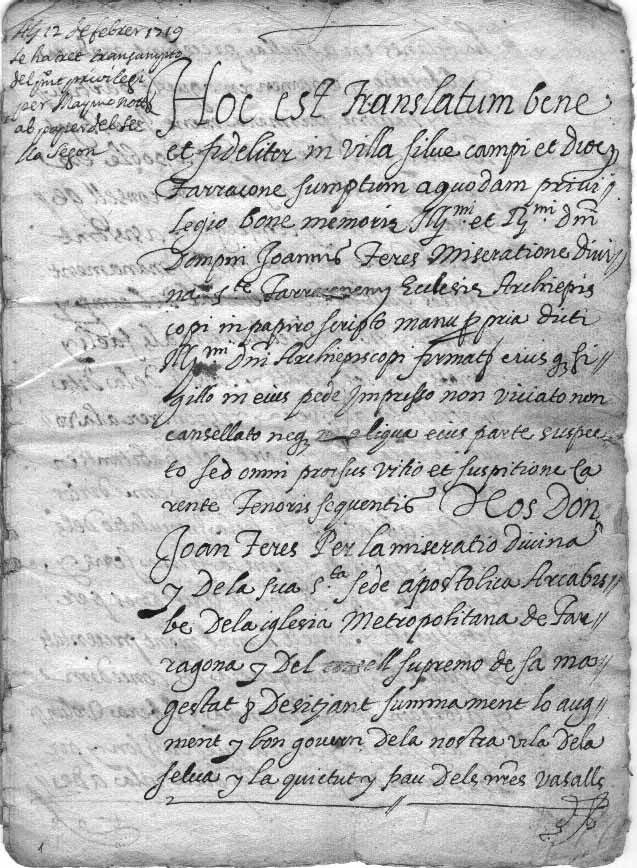 12 de febrer 1719
se ha tret transumpto
del pnt privilegi
per
ab paper del se
llo segon
Hoc est Translatum bene
et fideliter in villa silve campi et dioc
Tarracone sumptum a quodam privi//
legio bone memorie Illmi et Rmi Dñi
Dompni Joannis Teres Miseratione Divi
na ste Tarraconen Ecclesie Archiepis
copi in papiro scripto manu ppria dicti
Illmi Dñi Archiepiscopi firmat eiusq. si//
gillo in eius pede Impresso non viciato non
cansellato neq. aliqua eius parte suspec
to sed omni prorsus vitio et suspitione ca
rente Tenoris sequentis Nos Don
Joan Teres Per la miseratio divina
y De la sua s.ta sede apostolica Arcabis
be De la iglesia Metropolitana de Tar//
ragona y Del consell supremo de sa ma//
gestat & Desitjant summament lo aug//
ment y bon govern de la nostra vila De la
selva y la quietut y pau dels nres vasalls
1